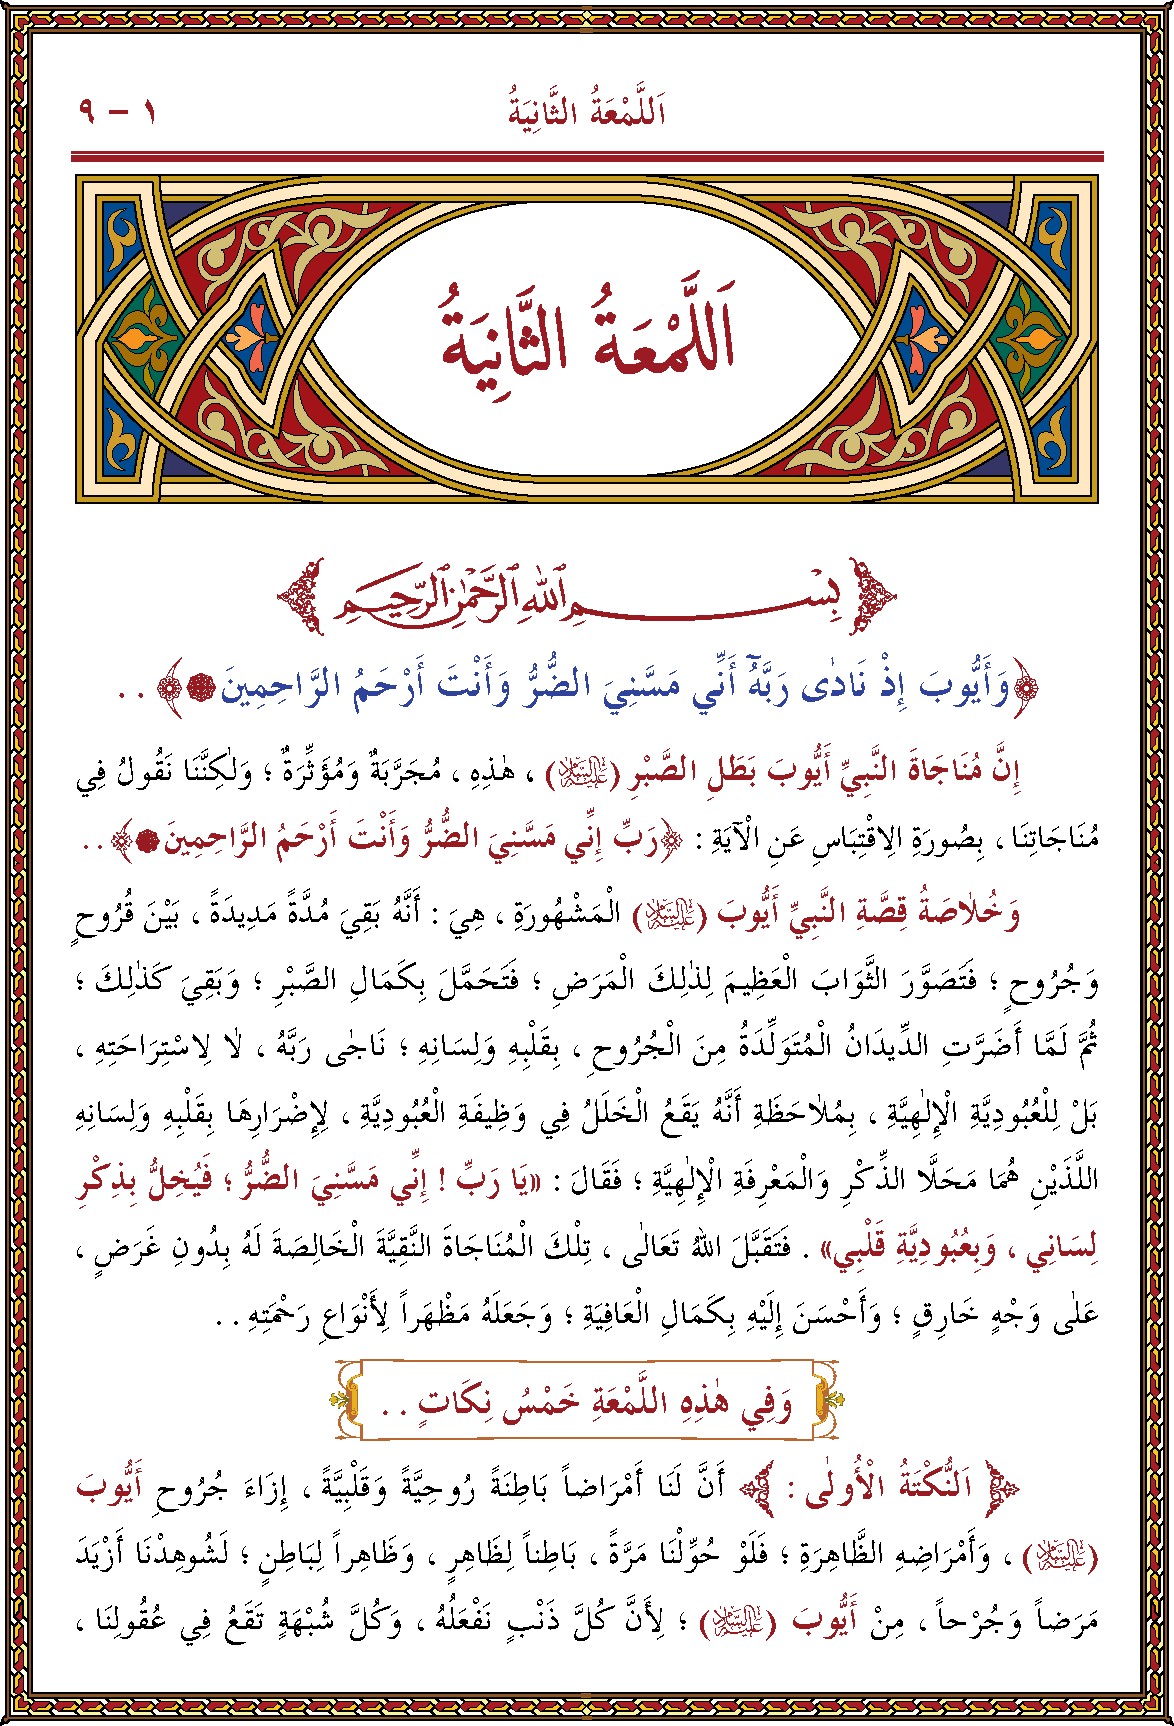 اَللَّمْعَةُ الثَّانِيَةُ
١ – ٩
اَللَّمْعَةُ الثَّانِيَةُ
بِسْمِ اللهِ الرَّحْمٰنِ الرَّحِيمِ
﴿وَأَيُّوبَ إِذْ نَادٰى رَبَّهُٓ أَنِّي مَسَّنِيَ الضُّرُّ وَأَنْتَ أَرْحَمُ الرَّاحِمِينَ﴾ . .
إِنَّ مُنَاجَاةَ النَّبِيِّ أَيُّوبَ بَطَلِ الصَّبْرِ (عليه السلام) ، هٰذِهِ ، مُجَرَّبَةٌ وَمُؤَثِّرَةٌ ؛ وَلٰكِنَّنَا نَقُولُ فِي
مُنَاجَاتِنَا ، بِصُورَةِ الِاقْتِبَاسِ عَنِ الْآيَةِ : ﴿رَبِّ إِنِّي مَسَّنِيَ الضُّرُّ وَأَنْتَ أَرْحَمُ الرَّاحِمِينَ﴾ . .
وَخُلَاصَةُ قِصَّةِ النَّبِيِّ أَيُّوبَ (عليه السلام) الْمَشْهُورَةِ ، هِيَ : أَنَّهُ بَقِيَ مُدَّةً مَدِيدَةً ، بَيْنَ قُرُوحٍ
وَجُرُوحٍ ؛ فَتَصَوَّرَ الثَّوَابَ الْعَظِيمَ لِذٰلِكَ الْمَرَضِ ؛ فَتَحَمَّلَ بِكَمَالِ الصَّبْرِ ؛ وَبَقِيَ كَذٰلِكَ ؛
ثُمَّ لَمَّا أَضَرَّتِ الدِّيدَانُ الْمُتَوَلِّدَةُ مِنَ الْجُرُوحِ ، بِقَلْبِهِ وَلِسَانِهِ ؛ نَاجٰى رَبَّهُ ، لَا لِاسْتِرَاحَتِهِ ،
بَلْ لِلْعُبُودِيَّةِ الْإِلٰهِيَّةِ ، بِمُلَاحَظَةِ أَنَّهُ يَقَعُ الْخَلَلُ فِي وَظِيفَةِ الْعُبُودِيَّةِ ، لِإِضْرَارِهَا بِقَلْبِهِ وَلِسَانِهِ
اللَّذَيْنِ هُمَا مَحَلَّا الذِّكْرِ وَالْمَعْرِفَةِ الْإِلٰهِيَّةِ ؛ فَقَالَ : «يَا رَبِّ ! إِنِّي مَسَّنِيَ الضُّرُّ ؛ فَيُخِلُّ بِذِكْرِ
لِسَانِي ، وَبِعُبُودِيَّةِ قَلْبِي» . فَتَقَبَّلَ اللهُ تَعَالٰى ، تِلْكَ الْمُنَاجَاةَ النَّقِيَّةَ الْخَالِصَةَ لَهُ بِدُونِ غَرَضٍ ،
عَلٰى وَجْهٍ خَارِقٍ ؛ وَأَحْسَنَ إِلَيْهِ بِكَمَالِ الْعَافِيَةِ ؛ وَجَعَلَهُ مَظْهَراً لِأَنْوَاعِ رَحْمَتِهِ . .
وَفِي هٰذِهِ اللَّمْعَةِ خَمْسُ نِكَاتٍ . .
اَلنُّكْتَةُ الْأُولٰى : أَنَّ لَنَا أَمْرَاضاً بَاطِنَةً رُوحِيَّةً وَقَلْبِيَّةً ، إِزَاءَ جُرُوحِ أَيُّوبَ
(عليه السلام) ، وَأَمْرَاضِهِ الظَّاهِرَةِ ؛ فَلَوْ حُوِّلْنَا مَرَّةً ، بَاطِناً لِظَاهِرٍ ، وَظَاهِراً لِبَاطِنٍ ؛ لَشُوهِدْنَا أَزْيَدَ
مَرَضاً وَجُرْحاً ، مِنْ أَيُّوبَ (عليه السلام) ؛ لِأَنَّ كُلَّ ذَنْبٍ نَفْعَلُهُ ، وَكُلَّ شُبْهَةٍ تَقَعُ فِي عُقُولِنَا ،